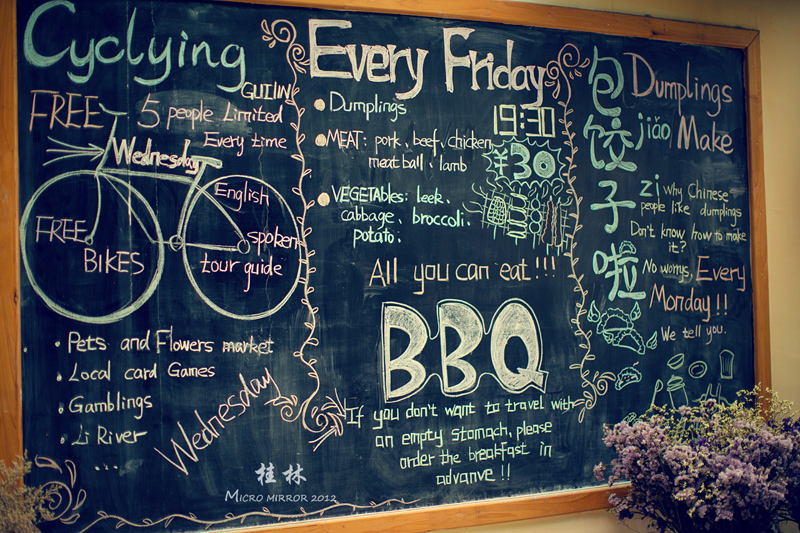 Cyclying
GUILIN
FREE 5 people Limited
Every time
Wednesday
English
spoken
tour guide
FREE
BIKES
• Pets and Flowers market
• Local card Games
• Gamblings
• Li River
...
Wednesday
Every Friday
• Dumplings
19:30
• MEAT: pork, beef, chicken,
meat ball, lamb
¥30
• VEGETABLES: leek,
cabbage, broccoli,
potato.
All you can eat!!!
BBQ
If you don't want to travel with
an empty stomach, please
order the breakfast in
advanve!!
包饺子啦
Dumplings
jiǎo Make
zi why Chinese
people like dumplings
Don't know how to make
it?
No worrys, Every
Monday!!
We tell you.
桂林
MICRO MIRROR 2012